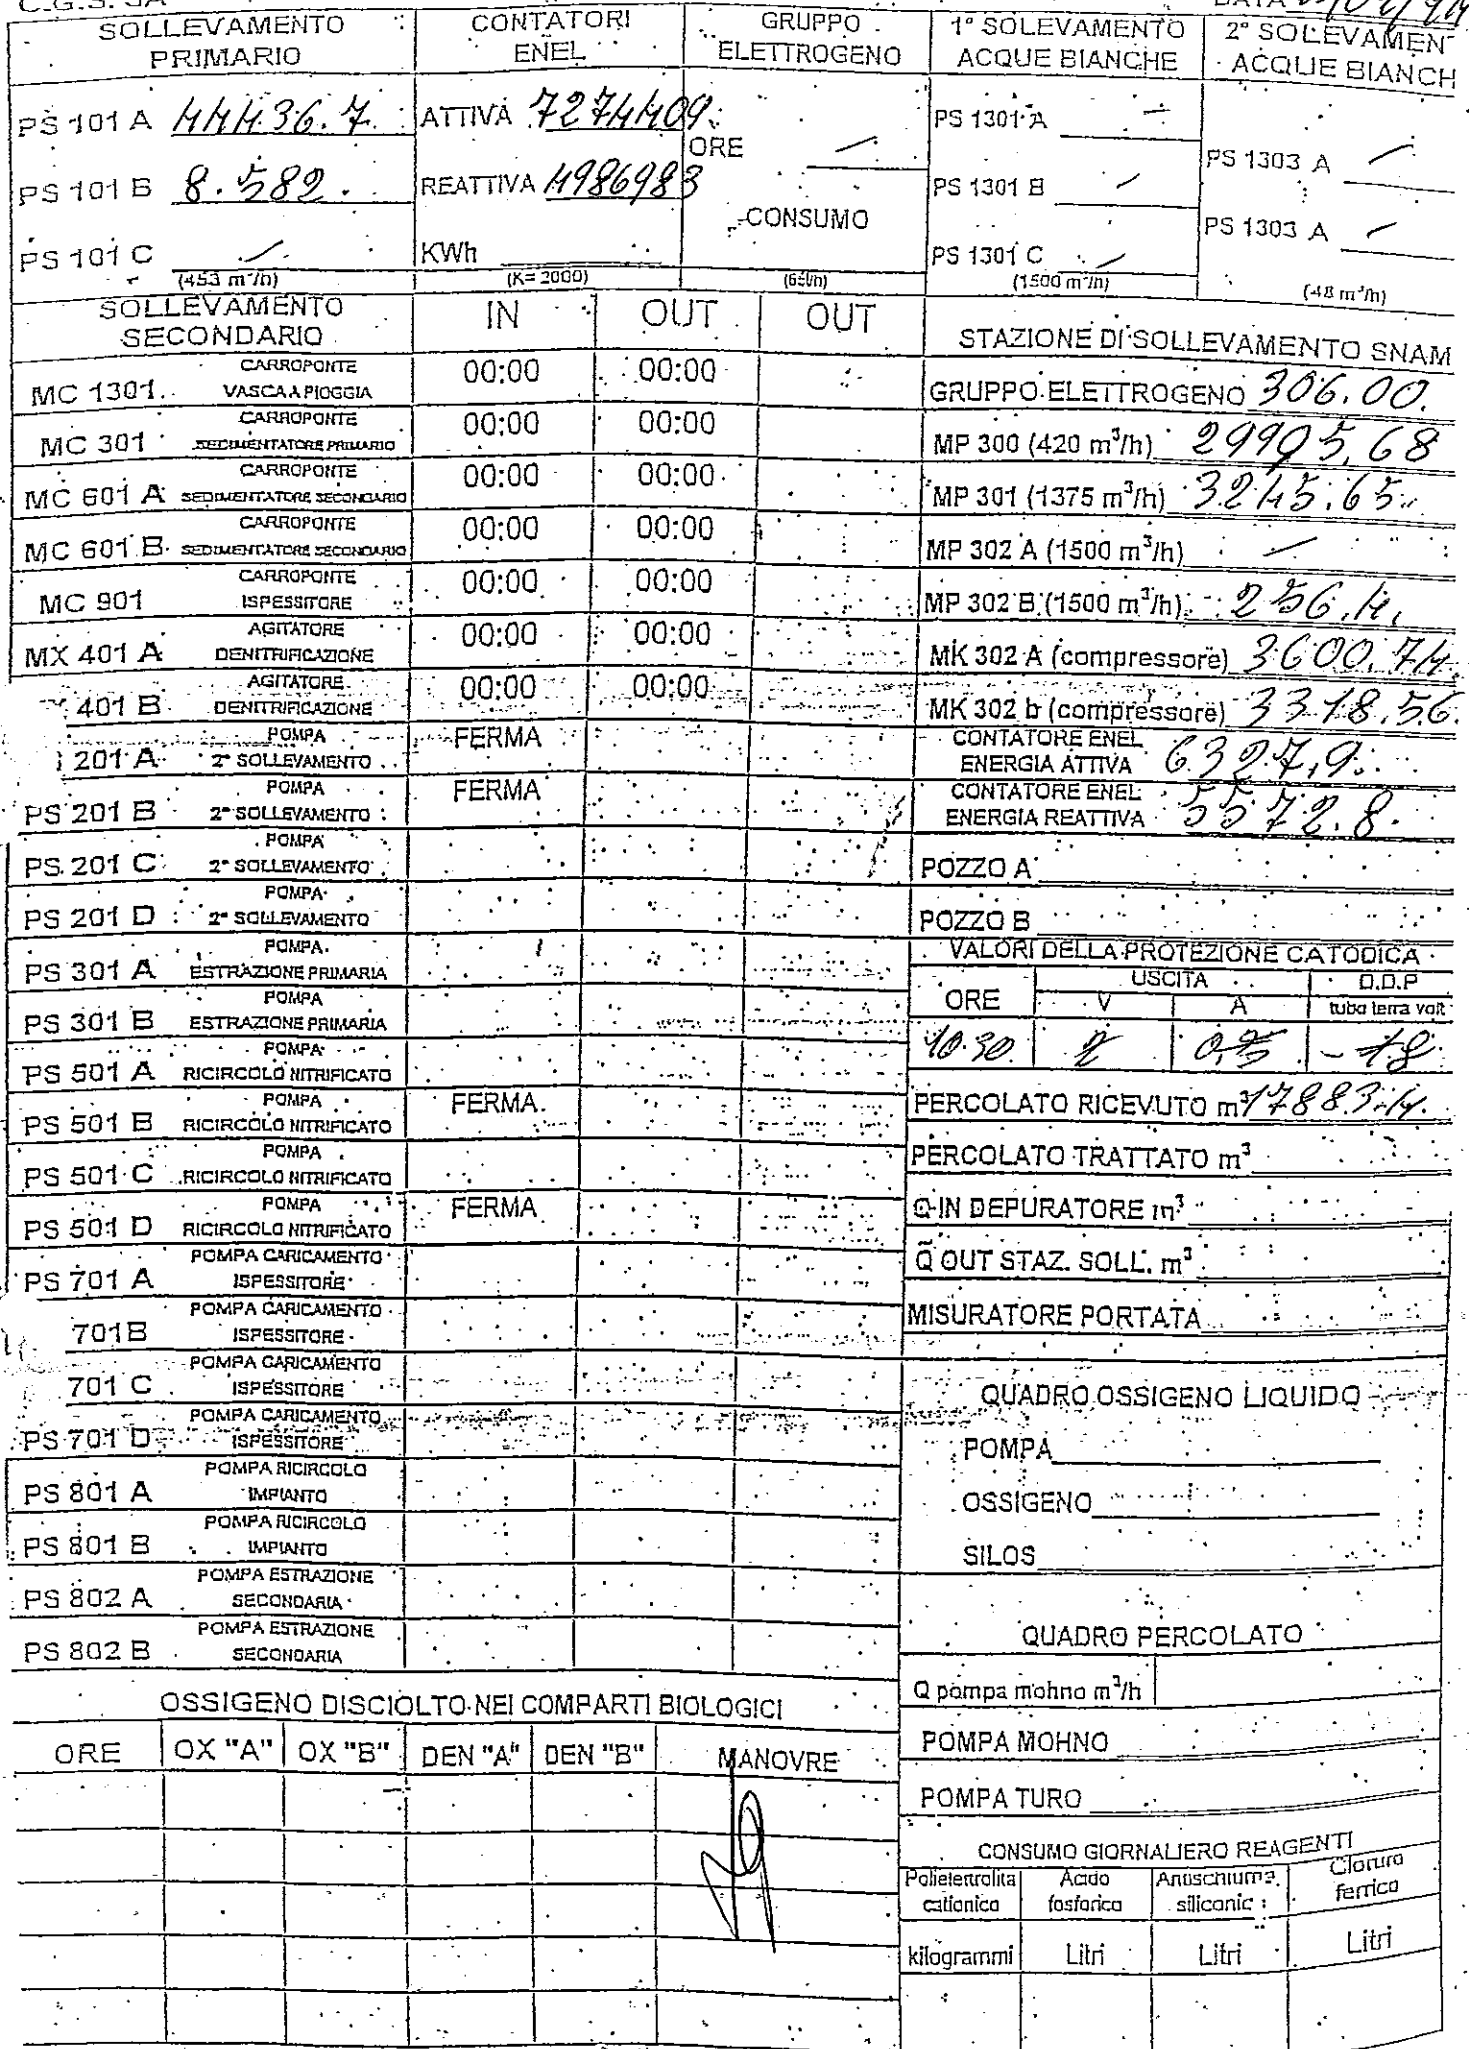 SOLLEVAMENTO PRIMARIO
CONTATORI ENEL
GRUPPO ELETTROGENO
1° SOLEVAMENTO ACQUE BIANCHE
2° SOLEVAMEN
ACQUE BIANCH
PS 101 A 44436.7
ATTIVA 7274409
ORE /
PS 1301 A /
PS 1303 A /
PS 101 B 8.582.
REATTIVA 4986983
CONSUMO
PS 1301 B /
PS 1303 A /
PS 101 C /
KWh
PS 1301 C /
(453 m³/h)
(K= 2000)
(1500 m³/h)
(48 m³/h)
SOLLEVAMENTO SECONDARIO
IN OUT OUT
MC 1301 CARROPONTE VASCA A PIOGGIA 00:00 00:00
MC 301 CARROPONTE SEDIMENTATORE PRIMARIO 00:00 00:00
MC 601 A CARROPONTE SEDIMENTATORE SECONDARIO 00:00 00:00
MC 601 B CARROPONTE SEDIMENTATORE SECONDARIO 00:00 00:00
MC 901 CARROPONTE ISPESSITORE 00:00 00:00
MX 401 A AGITATORE DENITRIFICAZIONE 00:00 00:00
401 B AGITATORE DENITRIFICAZIONE 00:00 00:00
201 A POMPA 2° SOLLEVAMENTO FERMA
PS 201 B POMPA 2° SOLLEVAMENTO FERMA
PS 201 C POMPA 2° SOLLEVAMENTO
PS 201 D POMPA 2° SOLLEVAMENTO
PS 301 A POMPA ESTRAZIONE PRIMARIA
PS 301 B POMPA ESTRAZIONE PRIMARIA
PS 501 A POMPA RICIRCOLO NITRIFICATO
PS 501 B POMPA RICIRCOLO NITRIFICATO FERMA
PS 501 C POMPA RICIRCOLO NITRIFICATO
PS 501 D POMPA RICIRCOLO NITRIFICATO FERMA
PS 701 A POMPA CARICAMENTO ISPESSITORE
701 B POMPA CARICAMENTO ISPESSITORE
701 C POMPA CARICAMENTO ISPESSITORE
PS 701 D POMPA CARICAMENTO ISPESSITORE
PS 801 A POMPA RICIRCOLO IMPIANTO
PS 801 B POMPA RICIRCOLO IMPIANTO
PS 802 A POMPA ESTRAZIONE SECONDARIA
PS 802 B POMPA ESTRAZIONE SECONDARIA
OSSIGENO DISCIOLTO NEI COMPARTI BIOLOGICI
ORE OX "A" OX "B" DEN "A" DEN "B" MANOVRE
STAZIONE DI SOLLEVAMENTO SNAM
GRUPPO ELETTROGENO 306.00.
MP 300 (420 m³/h) 29905,68
MP 301 (1375 m³/h) 3245.65
MP 302 A (1500 m³/h) /
MP 302 B (1500 m³/h) 256.4.
MK 302 A (compressore) 3600.74.
MK 302 b (compressore) 3318.56.
CONTATORE ENEL ENERGIA ATTIVA 6327,9
CONTATORE ENEL ENERGIA REATTIVA 5572.8.
POZZO A
POZZO B
VALORI DELLA PROTEZIONE CATODICA
ORE USCITA D.D.P
V A tubo terra volt
10.30
PERCOLATO RICEVUTO m³ 17883.4.
PERCOLATO TRATTATO m³
Q IN DEPURATORE m³
Q OUT STAZ. SOLL. m³
MISURATORE PORTATA
QUADRO OSSIGENO LIQUIDO
POMPA
OSSIGENO
SILOS
QUADRO PERCOLATO
Q pompa mohno m³/h
POMPA MOHNO
POMPA TURO
CONSUMO GIORNALIERO REAGENTI
Polielettrolita cationico
Acido fosforico
Antischiuma siliconic
Cloruro ferrico
kilogrammi Litri Litri Litri